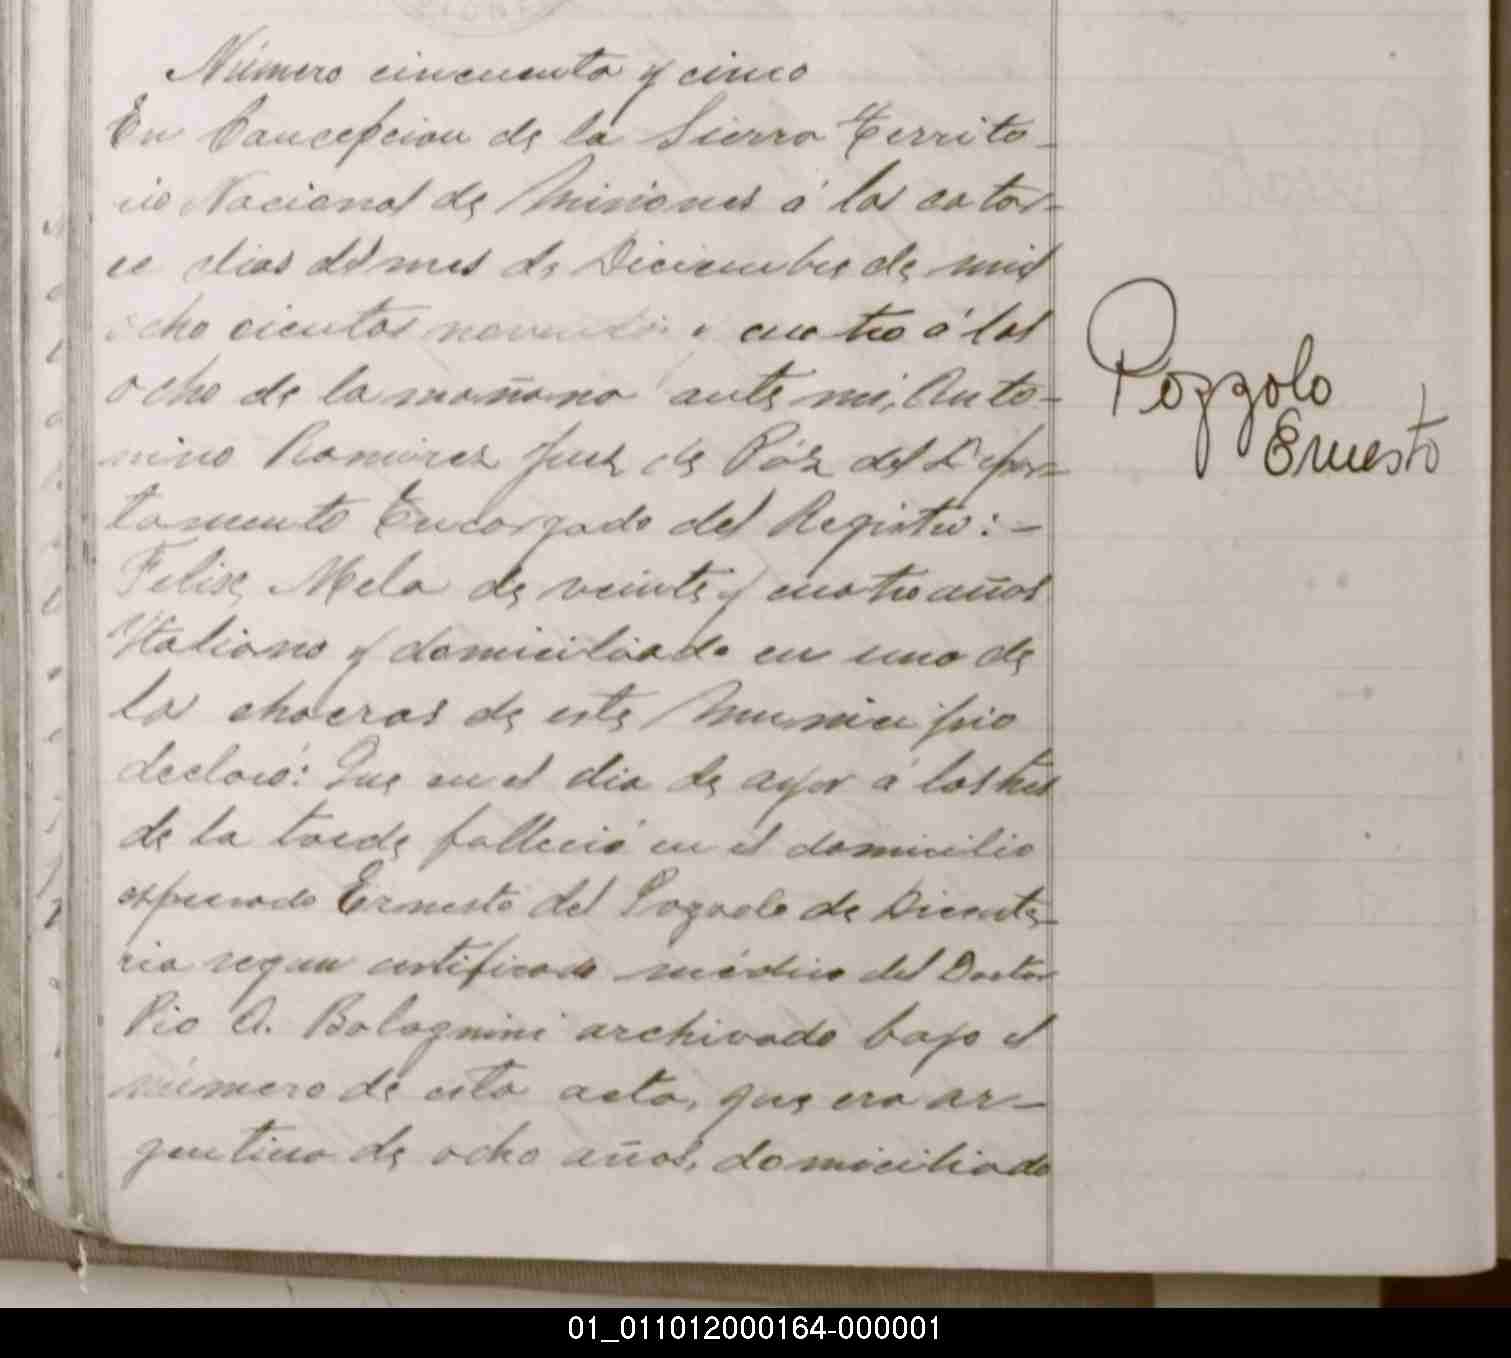 Número cincuenta y cinco
En Concepcion de la Sierra Territo-
rio Nacional de Misiones á los cator-
ce dias del mes de Diciembre de mil
ocho cientos noventa y cuatro á las
ocho de la mañana ante mi, Anto-
nino Ramirez Juez de Páz del Depar-
tamento Encargado del Registro: -
Felix Mela de veinte y cuatro años
Italiano y domiciliado en una de
la chacras de este Municipio
declaró: Que en el dia de ayer á las tres
de la tarde falleció en el domicilio
expresado Ernesto del Pozzolo de Dicente-
ria segun certificado médico del Doctor
Pio A. Bolognini archivado bajo el
número de esta acta, que era ar-
gentino de ocho años, domiciliado
Pozzolo
Ernesto
01_011012000164-000001